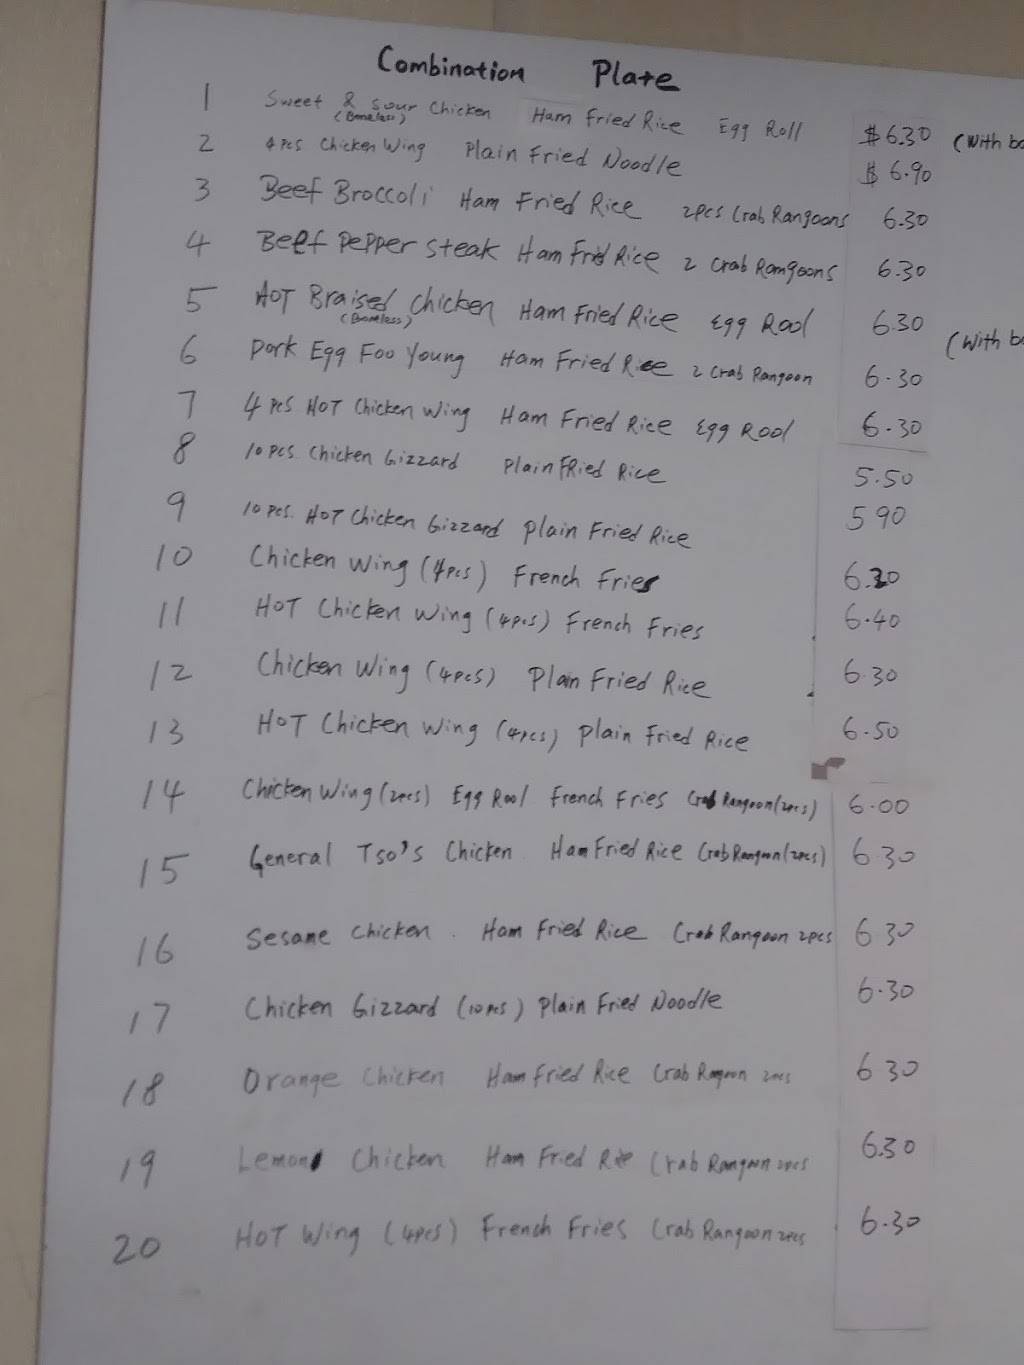 Combination Plate
1 Sweet & Sour Chicken Ham Fried Rice Egg Roll $6.30 (With
(Boneless)
2 4 pcs Chicken Wing Plain Fried Noodle $6.90
3 Beef Broccoli Ham Fried Rice 2pcs Crab Rangoons 6.30
4 Beef Pepper Steak Ham Fried Rice 2 Crab Rangoons 6.30
5 HOT Braised Chicken Ham Fried Rice Egg Rool 6.30 (With
(Boneless)
6 Pork Egg Foo Young Ham Fried Rice 2 Crab Rangoon 6.30
7 4 pcs HOT Chicken Wing Ham Fried Rice Egg Rool 6.30
8 10 pcs. Chicken Gizzard Plain Fried Rice 5.50
9 10 pcs. HOT Chicken Gizzard Plain Fried Rice 5 90
10 Chicken Wing (4pcs) French Fries
11 HOT Chicken Wing (4pcs) French Fries 6.40
12 Chicken Wing (4pcs) Plain Fried Rice 6.30
13 HOT Chicken Wing (4pcs) Plain Fried Rice 6.50
14 Chicken Wing (2pcs) Egg Rool French Fries Crab Rangoon (2pcs) 6.00
15 General Tso's Chicken. Ham Fried Rice Crab Rangoon (2pcs) 6.30
16 Sesame Chicken. Ham Fried Rice Crab Rangoon 2pcs 6.30
17 Chicken Gizzard (10pcs) Plain Fried Noodle 6.30
18 Orange Chicken Ham Fried Rice Crab Rangoon 2pcs 6.30
19 Lemon Chicken Ham Fried Rice Crab Rangoon 2pcs 6.30
20 HOT Wing (4pcs) French Fries Crab Rangoon 2pcs 6.30